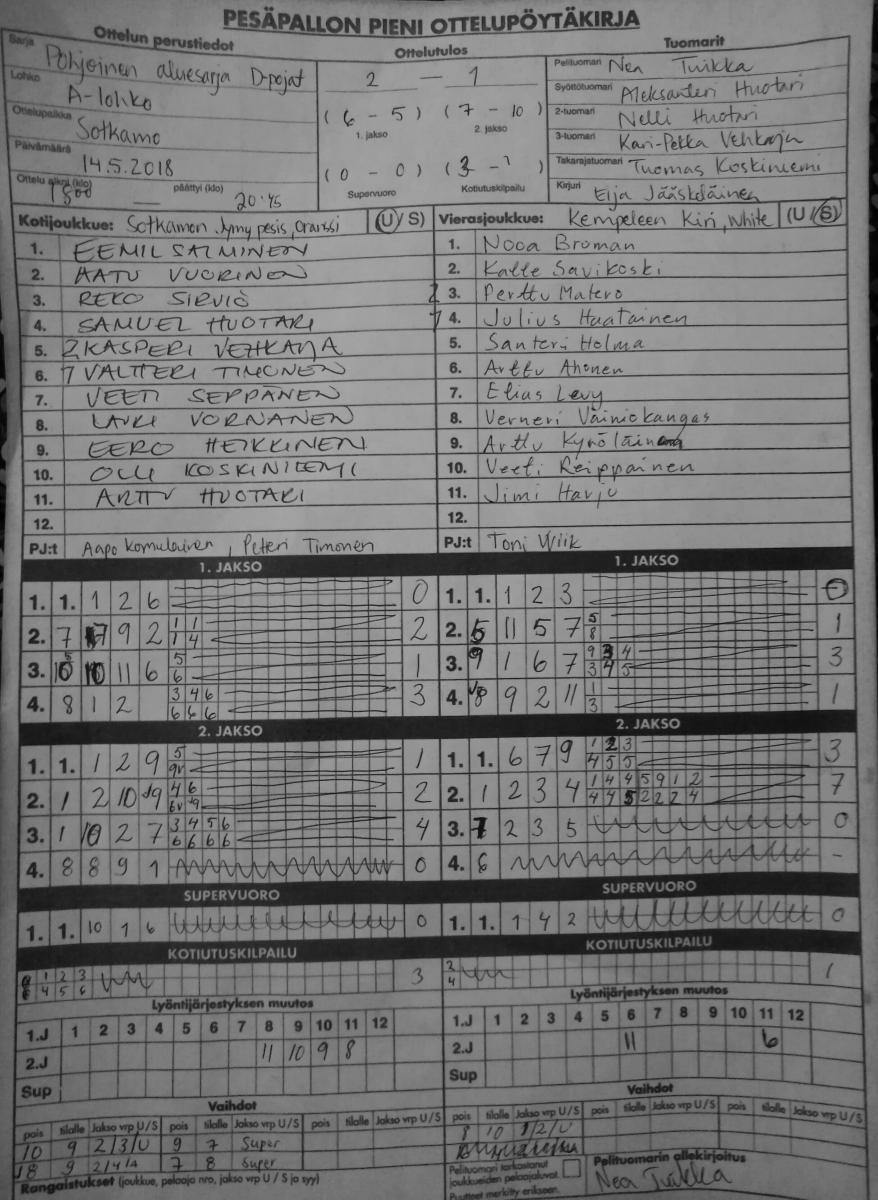 PESÄPALLON PIENI OTTELUPÖYTÄKIRJA
Ottelun perustiedot
Sarja Pohjoinen aluesarja D-pojat
Lohko A-lohko
Ottelupaikka Sotkamo
Päivämäärä 14.5.2018
Ottelu alkoi (klo) 1800 — päättyi (klo) 20.45
Ottelutulos
2 — 1
( 6 - 5 ) ( 7 - 10 )
1. jakso 2. jakso
( 0 - 0 ) ( 3 - 1 )
Supervuoro Kotiutuskilpailu
Tuomarit
Pelituomari Nea Tuikka
Syöttötuomari Aleksanteri Huotari
2-tuomari Nelli Huotari
3-tuomari Kari-Pekka Vehkaoja
Takarajatuomari Tuomas Koskiniemi
Kirjuri Eija Jääskeläinen
Kotijoukkue: Sotkamon Jymy pesis, Oranssi (U/S)
1. EEMIL SALMINEN
2. AATU VUORINEN
3. REKO SIRVIÖ
4. SAMUEL HUOTARI
5. 2 KASPERI VEHKAOJA
6. 1 VALTTERI TIMONEN
7. VEETI SEPPÄNEN
8. LAURI VORNANEN
9. EERO HEIKKINEN
10. OLLI KOSKINIEMI
11. ARTTU HUOTARI
12.
PJ:t Aapo Komulainen, Petteri Timonen
Vierasjoukkue: Kempeleen Kiri, White (U/S)
1. Nooa Broman
2. Kalle Savikoski
2 3. Perttu Matero
1 4. Julius Haatainen
5. Santeri Holma
6. Arttu Ahonen
7. Elias Levy
8. Verneri Väiniökangas
9. Arttu Kynöläinen
10. Veeti Reippainen
11. Jimi Harju
12.
PJ:t Toni Wiik
1. JAKSO
1. 1. 1 2 6 0
2. 7 9 2 1 1 2
1 4
3. 11 6 5 1
6
4. 8 1 2 3 4 6 3
6 6 6
2. JAKSO
1. 1. 1 2 9 5 1
9v
2. 1 2 10 J9 4 6 2
6v
3. 1 10 2 7 3 4 5 6 4
6 6 6 6
4. 8 8 9 1 0
SUPERVUORO
1. 1. 10 1 6 0
KOTIUTUSKILPAILU
1 2 3 3
4 5 6
Lyöntijärjestyksen muutos
1.J 1 2 3 4 5 6 7 8 9 10 11 12
2.J 11 10 9 8
Sup
Vaihdot
pois tilalle Jakso vrp U/S pois tilalle Jakso vrp U/S pois tilalle Jakso vrp U/S
10 9 2/3/U 9 7 Super
J8 9 7 8 Super
Rangaistukset (joukkue, pelaaja nro, jakso vrp U / S ja syy)
1. JAKSO
1. 1. 1 2 3 0
2. 5 11 5 7 5 1
8
3. 9 1 6 7 9 3 4 3
3 4 5
4. J8 9 2 11 1 1
3
2. JAKSO
1. 1. 6 7 9 1 2 3 3
4 5 5
2. 1 2 3 4 1 4 4 5 9 1 2 7
4 4 5 2 2 2 4
3. 1 2 3 5 0
4. 6 -
SUPERVUORO
1. 1. 1 4 2 0
KOTIUTUSKILPAILU
2 1
4
Lyöntijärjestyksen muutos
1.J 1 2 3 4 5 6 7 8 9 10 11 12
2.J 11 6
Sup
Vaihdot
pois tilalle Jakso vrp U/S pois tilalle Jakso vrp U/S pois tilalle Jakso vrp U/S
8 10 1/2/U
Pelituomari tarkastanut
joukkueiden pelaajaluvat.
Puutteet merkitty erikseen.
Pelituomarin allekirjoitus
Nea Tuikka